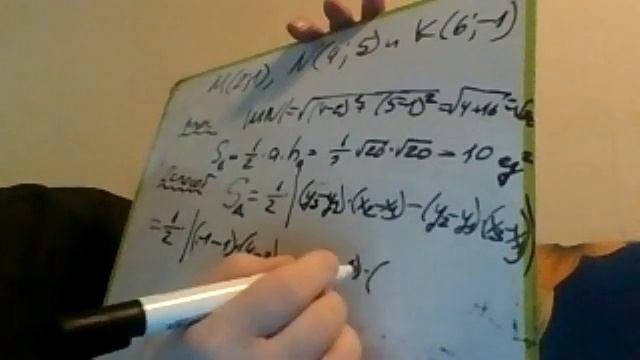 M(2;1), N(4;5) и K(6;-1)
|MN|=√(4-2)²+(5-1)²=√4+16=√
S△=1/2·a·h=1/2√20·√20=10
S△=1/2|(y₃-y₁)·(x₂-x₁)-(y₂-y₁)(x₃-x₁)
=1/2|(-1-1)·(4-2)
)·(